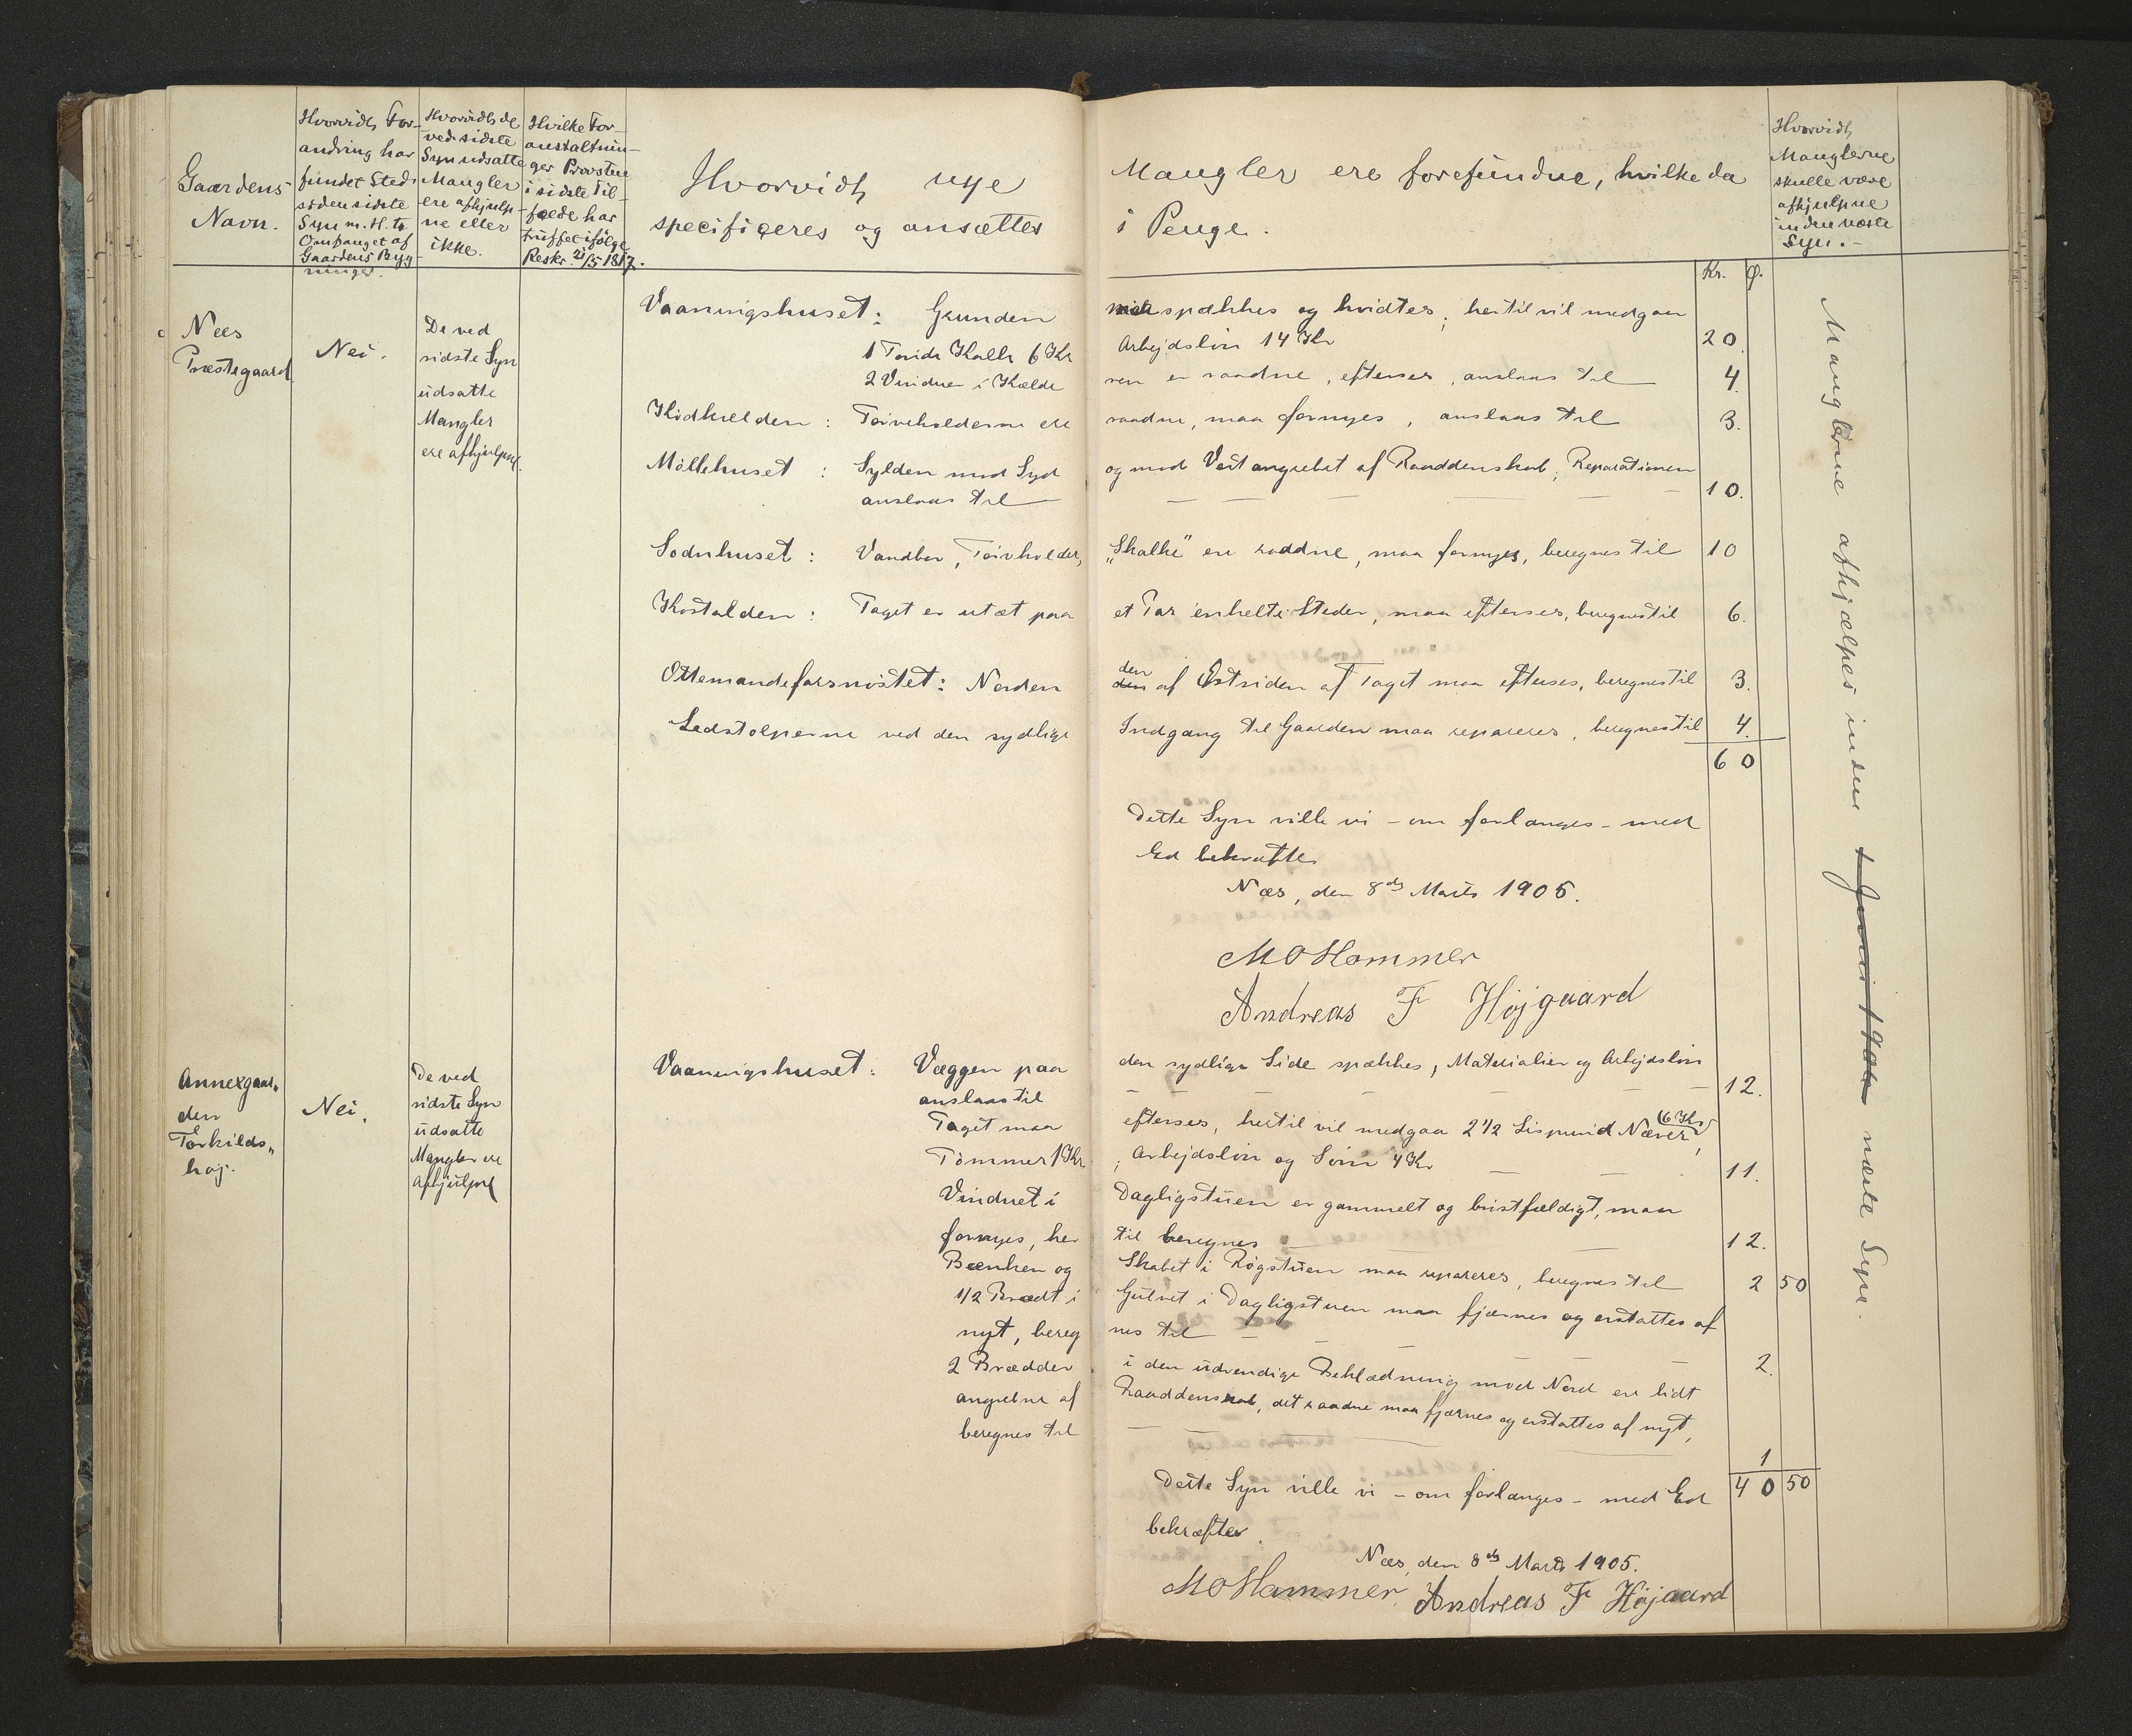 Gaardens
Navn.
Hvorvidt For-
andring har
fundet Sted
siden sidste
Syn m. H. t.
Omfanget af
Gaardens Byg
ninger.
Hvorvidt de
ved sidste
Syn udsatte
Mangler
ere afhjulp
ne eller
ikke.
Hvilke For-
anstaltnin-
ger Provsten
i sidste Til-
fælde har
truffet ifølge
Reskr. 21/5 1817.
Hvorvidt nye Mangler ere forefundne, hvilke da
specificeres og ansættes i Penge.
Hvorvidt
Manglerne
skulle være
afhjulpne
inden næste
Syn.-
Kr. Ø.
Nees
Præstegaard
Nei.
De ved
sidste Syn
udsatte
Mangler
ere afhjulpne.
Vaaningshuset: Grunden maa spækkes og hvidtes, hertil vil medgaa
1 Tønde Kalk 6 Kr Arbejdsløn 14 Kr 20.
2 Vinduer i Kælde ren er raadne, efterses, anslaas til 4.
Kødkælden: Tørveholderne ere raadne, maa fornyes, anslaas til 3.
Møllehuset: Sylden mod Syd og mod Vest angrebet af Raaddenskab, Reparationen
anslaas til 10.
Sodnhuset: Vandbor, Tørvholder, "Skalke" ere raddne, maa fornyes, beregnes til 10
Kostalden: Taget er utæt paa et Par enkelte Steder, maa efterses, beregnes til 6.
den
Ottemandefarsnøstet: Norden den af Østsiden af Taget maa efterses, beregnes til 3.
Ledstolperne ved den sydlige Indgang til Gaarden maa repareres, beregnes til 4.
60
Dette Syn ville vi - om forlanges - med
Ed bekræfte
Næs, den 8de Marts 1905.
M O Hammer
Andreas F Højgaard
Annexgaar„
den
Torkilds„
høj.
Nei.
De ved
sidste Syn
udsatte
Mangler ere
afhjulpne
Vaaningshuset: Væggen paa den sydlige Side spækkes, Materialier og Arbejdsløn
anslaas til 12.
Taget maa efterses, hertil vil medgaa 2 1/2 Lispund Næver (6 Kr),
Tømmer 1 Kr; Arbejdsløn og Søm 4 Kr 11.
Vinduet i Dagligstuen er gammelt og brøstfældigt, maa
fornyes, her til beregnes 12.
Bænken og Skabet i Røgstuen maa repareres, beregnes til 2 50
1/2 Brædt i Gulvet i Dagligstuen maa fjærnes og erstattes af
nyt, bereg nes til 2.
2 Brædder i den udvendige Beklædning mod Nord ere lidt
angrebne af Raaddenskab, det raadne maa fjærnes og erstattes af nyt,
beregnes til 1
40 50
Dette Syn ville vi - om forlanges - med Ed
bekræfte.
Næs, den 8de Marts 1905.
M O Hammer. Andreas F Højgaard
Manglerne afhjælpes inden næste Syn.